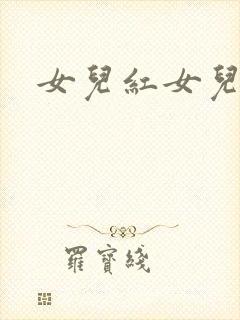 女兒紅女兒
羅寶綫